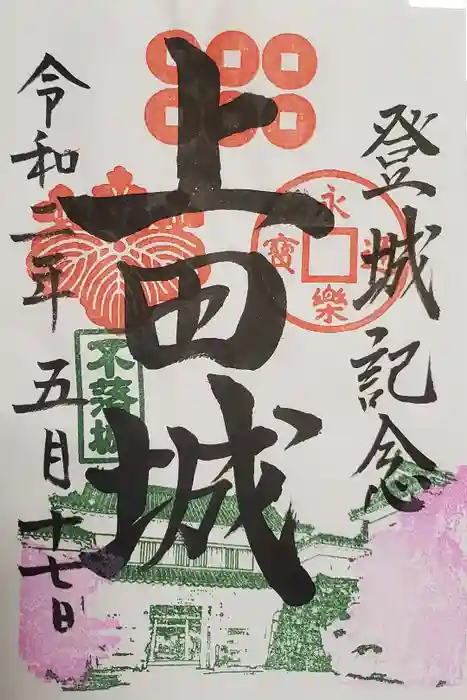 登城記念
上田城
永樂通寶
不落城
令和二年五月十七日